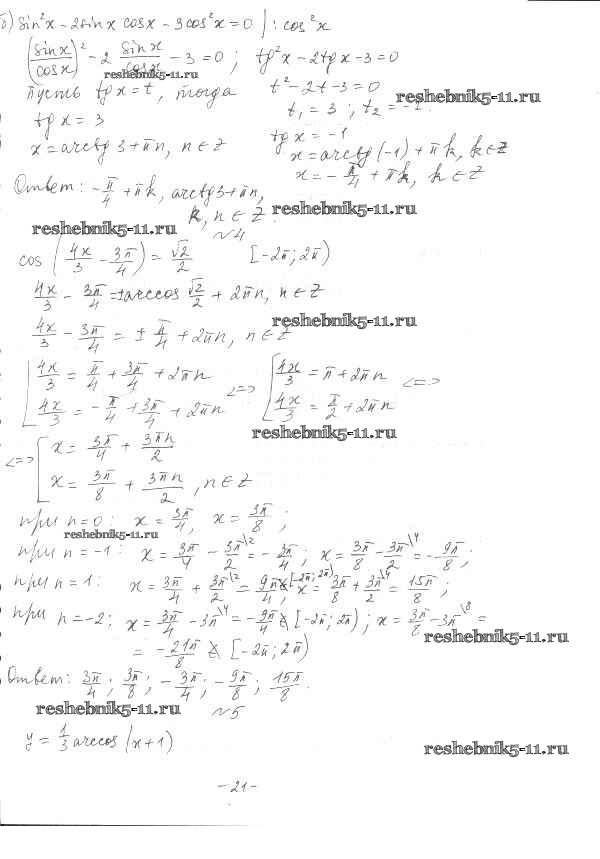 б) sin²x - 2sinx cosx - 3cos²x = 0 | : cos²x
(sinx/cosx)² - 2 sinx/cosx - 3 = 0 ; tg²x - 2tgx - 3 = 0
reshebnik5-11.ru
Пусть tgx = t, тогда t² - 2t - 3 = 0
t₁ = 3 ; t₂ = -1.
reshebnik5-11.ru
tgx = 3 tgx = -1
x = arctg3 + πn, n ∈ Z x = arctg(-1) + πk, k ∈ Z
x = -π/4 + πk, k ∈ Z
Ответ: -π/4 + πk, arctg3 + πn,
k, n ∈ Z.
reshebnik5-11.ru
reshebnik5-11.ru
№4
cos(4x/3 - 3π/4) = √2/2 [-2π; 2π)
4x/3 - 3π/4 = ±arccos √2/2 + 2πn, n ∈ Z
reshebnik5-11.ru
4x/3 - 3π/4 = ± π/4 + 2πn, n ∈ Z
[ 4x/3 = π/4 + 3π/4 + 2πn <=> [ 4x/3 = π + 2πn <=>
4x/3 = -π/4 + 3π/4 + 2πn 4x/3 = π/2 + 2πn
reshebnik5-11.ru
<=> [ x = 3π/4 + 3πn/2
x = 3π/8 + 3πn/2, n ∈ Z
при n = 0: x = 3π/4, x = 3π/8 ;
reshebnik5-11.ru
при n = -1: x = 3π/4 - 3π/2\2 = -3π/4 ; x = 3π/8 - 3π/2\4 = -9π/8 ;
при n = 1: x = 3π/4 + 3π/2\2 = 9π/4 ∉ [-2π; 2π) ; x = 3π/8 + 3π/2\4 = 15π/8 ;
при n = -2; x = 3π/4 - 3π\4 = -9π/4 ∉ [-2π; 2π) ; x = 3π/8 - 3π\8 =
reshebnik5-11.ru
= -21π/8 ∉ [-2π; 2π)
Ответ: 3π/4 ; 3π/8 ; -3π/4 ; -9π/8 ; 15π/8.
reshebnik5-11.ru
№5
y = 1/3 arccos(x+1)
reshebnik5-11.ru
-21-